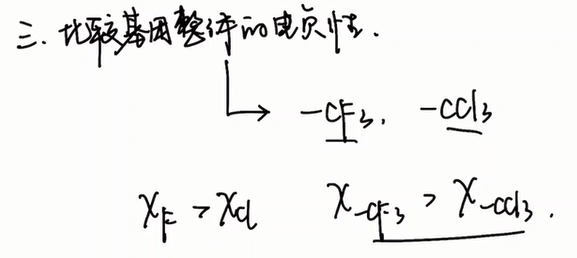 三. 比较基团整体的电负性.
-CF₃, -CCl₃
χF > χCl χ-CF₃ > χ-CCl₃.